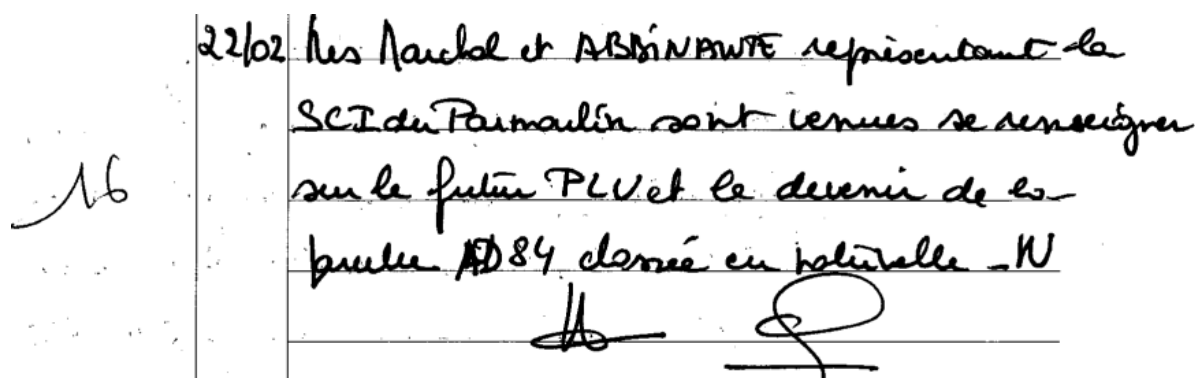 22/02 Mes Marchal et ABBINANTE représentant la
SCI du Parmoulin sont venues se renseigner
16 sur le futur PLU et le devenir de la
parcelle AD84 classée en naturelle - N